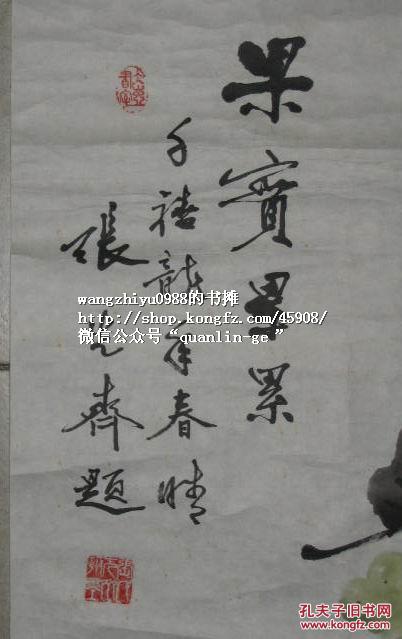 果實纍纍
千禧龍年春晴
張 齊題
wangzhiyu0988的书摊
http://shop.kongfz.com/45908/
微信公众号“quanlin-ge ”
孔夫子旧书网